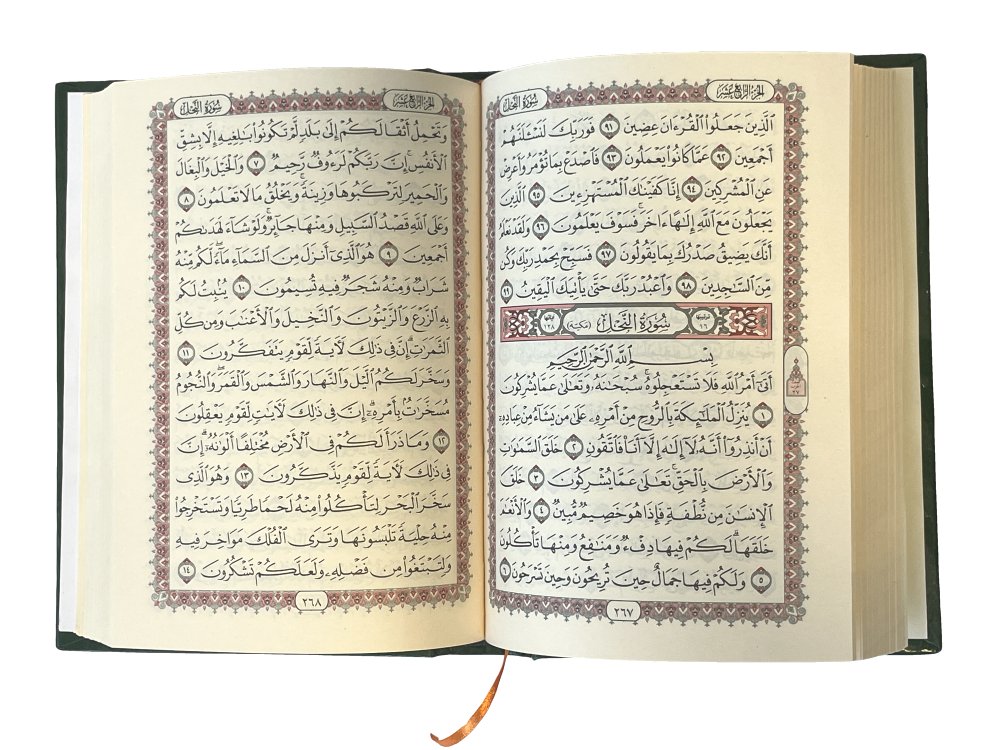 الجزء الرابع عشر
سورة النحل
الَّذِينَ جَعَلُوا الْقُرْءَانَ عِضِينَ ٩١ فَوَرَبِّكَ لَنَسْـَٔلَنَّهُمْ
أَجْمَعِينَ ٩٢ عَمَّا كَانُوا يَعْمَلُونَ ٩٣ فَاصْدَعْ بِمَا تُؤْمَرُ وَأَعْرِضْ
عَنِ الْمُشْرِكِينَ ٩٤ إِنَّا كَفَيْنَاكَ الْمُسْتَهْزِءِينَ ٩٥ الَّذِينَ
يَجْعَلُونَ مَعَ اللَّهِ إِلَهًا ءَاخَرَ فَسَوْفَ يَعْلَمُونَ ٩٦ وَلَقَدْ نَعْلَمُ
أَنَّكَ يَضِيقُ صَدْرُكَ بِمَا يَقُولُونَ ٩٧ فَسَبِّحْ بِحَمْدِ رَبِّكَ وَكُنْ
مِنَ السَّاجِدِينَ ٩٨ وَاعْبُدْ رَبَّكَ حَتَّى يَأْتِيَكَ الْيَقِينُ ٩٩
ترتيبها ١٦ سُورَةُ النَّحْلِ (مكية) آياتها ١٢٨
بِسْمِ اللَّهِ الرَّحْمَنِ الرَّحِيمِ
أَتَى أَمْرُ اللَّهِ فَلَا تَسْتَعْجِلُوهُ سُبْحَانَهُ وَتَعَالَى عَمَّا يُشْرِكُونَ
١ يُنَزِّلُ الْمَلَائِكَةَ بِالرُّوحِ مِنْ أَمْرِهِ عَلَى مَنْ يَشَاءُ مِنْ عِبَادِهِ
أَنْ أَنْذِرُوا أَنَّهُ لَا إِلَهَ إِلَّا أَنَا فَاتَّقُونِ ٢ خَلَقَ السَّمَوَاتِ
وَالْأَرْضَ بِالْحَقِّ تَعَالَى عَمَّا يُشْرِكُونَ ٣ خَلَقَ
الْإِنْسَانَ مِنْ نُطْفَةٍ فَإِذَا هُوَ خَصِيمٌ مُبِينٌ ٤ وَالْأَنْعَامَ
خَلَقَهَا لَكُمْ فِيهَا دِفْءٌ وَمَنَافِعُ وَمِنْهَا تَأْكُلُونَ
٥ وَلَكُمْ فِيهَا جَمَالٌ حِينَ تُرِيحُونَ وَحِينَ تَسْرَحُونَ ٦
٢٦٧
الجزء الرابع عشر
سورة النحل
وَتَحْمِلُ أَثْقَالَكُمْ إِلَى بَلَدٍ لَمْ تَكُونُوا بَالِغِيهِ إِلَّا بِشِقِّ
الْأَنْفُسِ إِنَّ رَبَّكُمْ لَرَءُوفٌ رَحِيمٌ ٧ وَالْخَيْلَ وَالْبِغَالَ
وَالْحَمِيرَ لِتَرْكَبُوهَا وَزِينَةً وَيَخْلُقُ مَا لَا تَعْلَمُونَ ٨
وَعَلَى اللَّهِ قَصْدُ السَّبِيلِ وَمِنْهَا جَائِرٌ وَلَوْ شَاءَ لَهَدَاكُمْ
أَجْمَعِينَ ٩ هُوَ الَّذِي أَنْزَلَ مِنَ السَّمَاءِ مَاءً لَكُمْ مِنْهُ
شَرَابٌ وَمِنْهُ شَجَرٌ فِيهِ تُسِيمُونَ ١٠ يُنْبِتُ لَكُمْ
بِهِ الزَّرْعَ وَالزَّيْتُونَ وَالنَّخِيلَ وَالْأَعْنَابَ وَمِنْ كُلِّ
الثَّمَرَاتِ إِنَّ فِي ذَلِكَ لَآيَةً لِقَوْمٍ يَتَفَكَّرُونَ ١١
وَسَخَّرَ لَكُمُ الَّيْلَ وَالنَّهَارَ وَالشَّمْسَ وَالْقَمَرَ وَالنُّجُومُ
مُسَخَّرَاتٌ بِأَمْرِهِ إِنَّ فِي ذَلِكَ لَآيَاتٍ لِقَوْمٍ يَعْقِلُونَ
١٢ وَمَا ذَرَأَ لَكُمْ فِي الْأَرْضِ مُخْتَلِفًا أَلْوَانُهُ إِنَّ
فِي ذَلِكَ لَآيَةً لِقَوْمٍ يَذَّكَّرُونَ ١٣ وَهُوَ الَّذِي
سَخَّرَ الْبَحْرَ لِتَأْكُلُوا مِنْهُ لَحْمًا طَرِيًّا وَتَسْتَخْرِجُوا
مِنْهُ حِلْيَةً تَلْبَسُونَهَا وَتَرَى الْفُلْكَ مَوَاخِرَ فِيهِ
وَلِتَبْتَغُوا مِنْ فَضْلِهِ وَلَعَلَّكُمْ تَشْكُرُونَ ١٤
٢٦٨